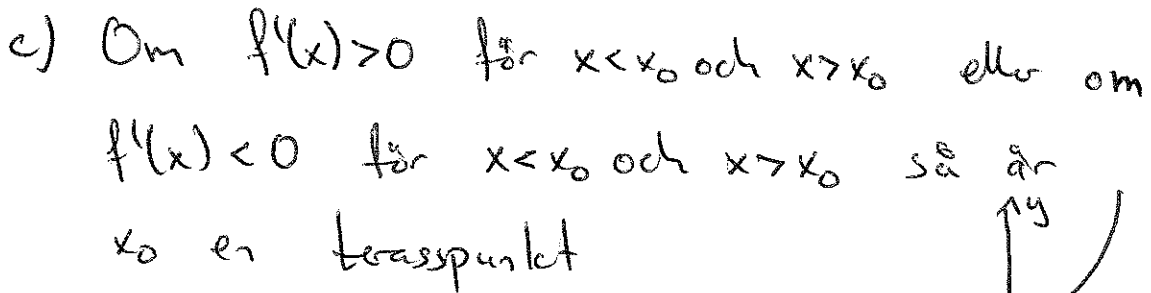 c) Om f'(x)>0 för x<x₀ och x>x₀ eller om
f'(x)<0 för x<x₀ och x>x₀ så är
x₀ en terasspunkt
y